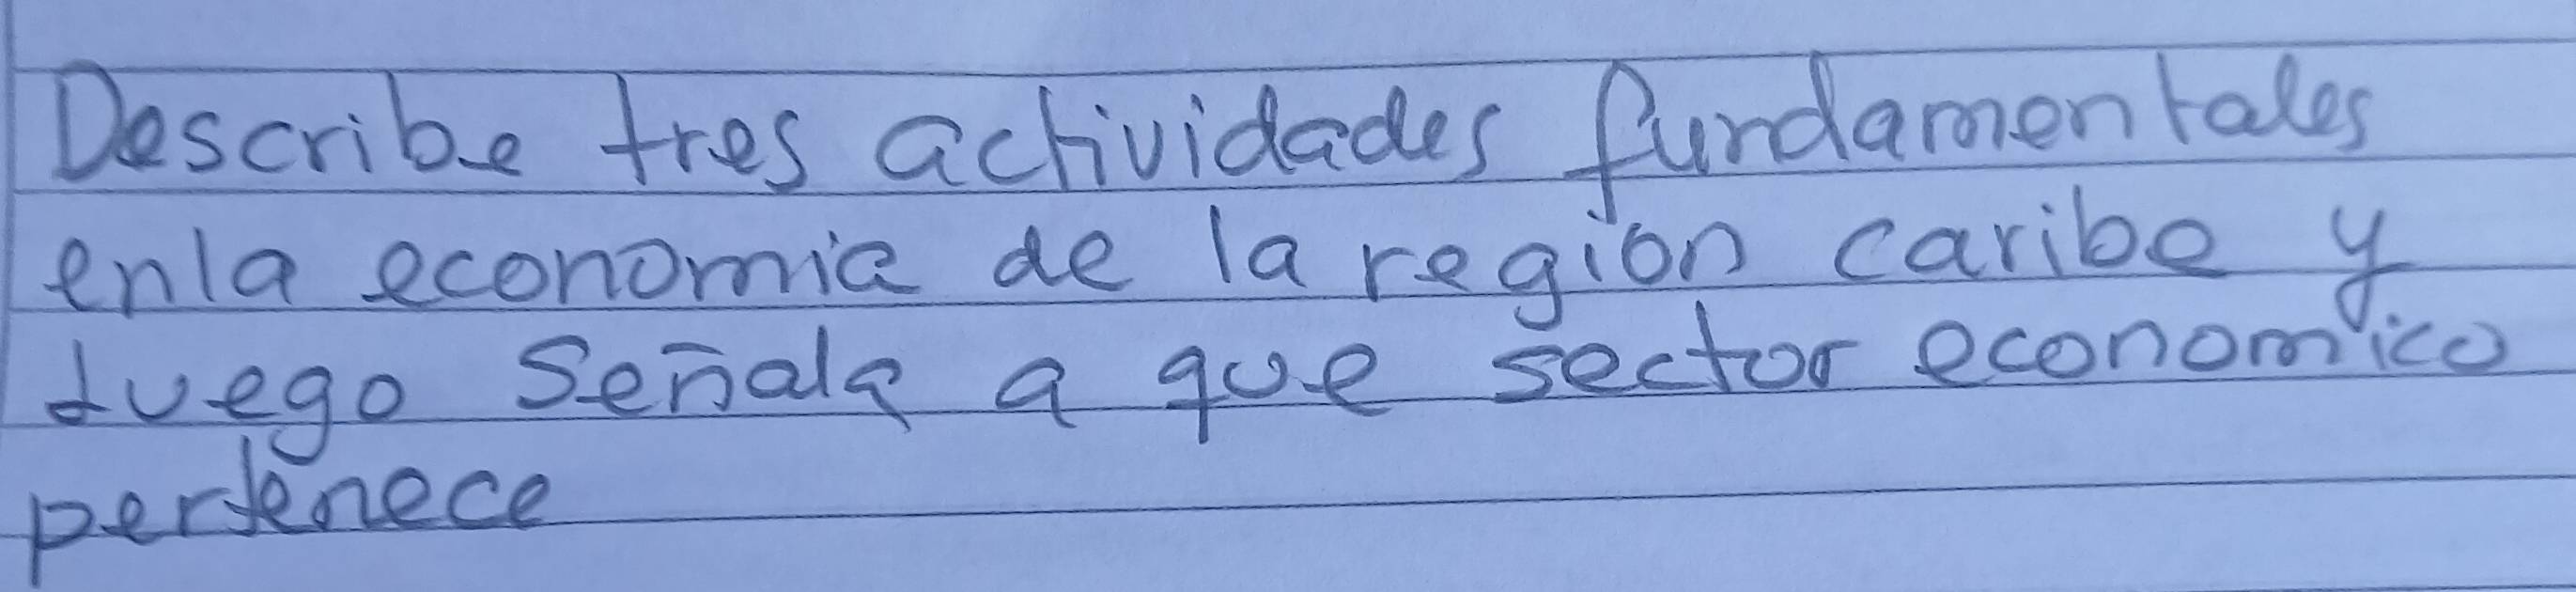 Describe tres actividades fundamentales
enla economia de la región caribe y
luego Señala a que sector economico
pertenece